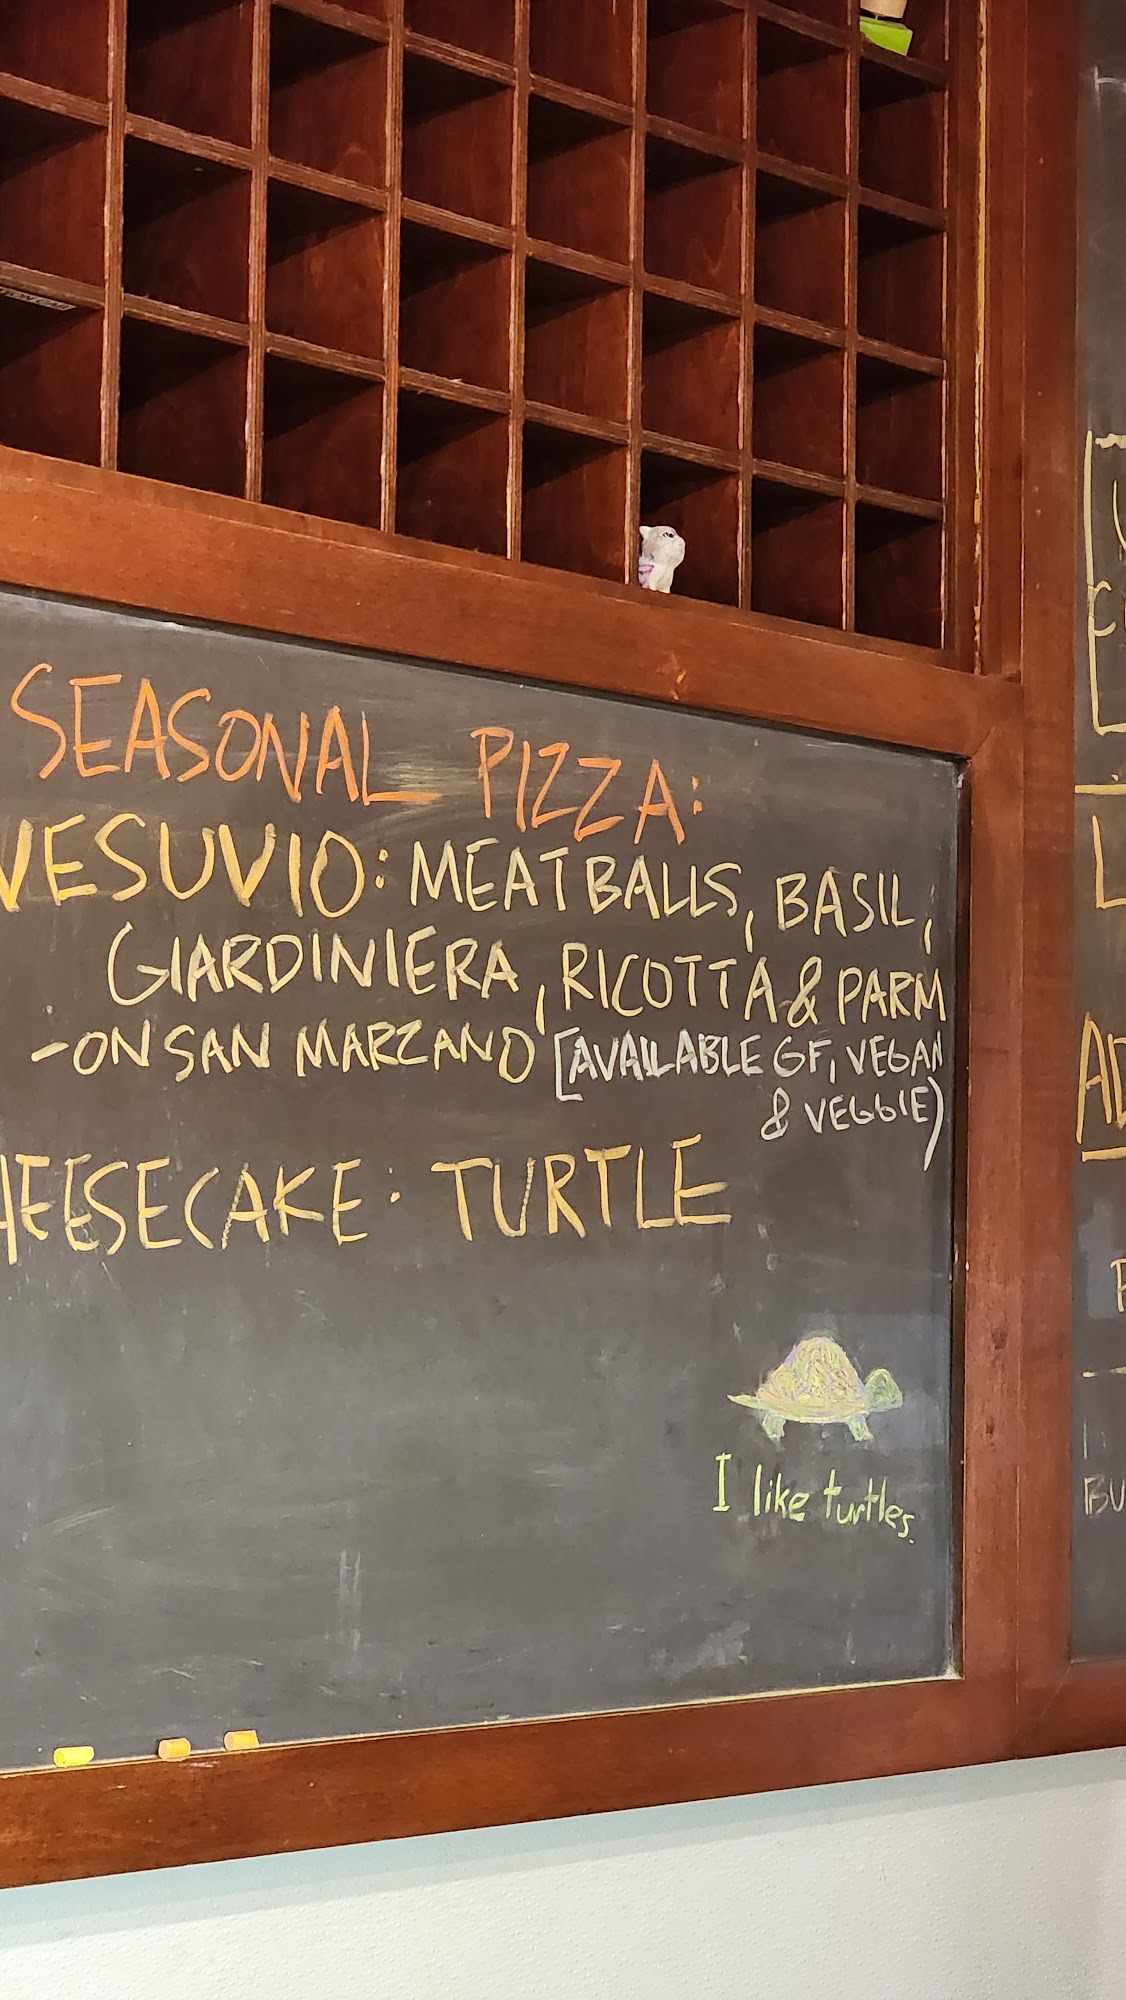 SEASONAL PIZZA:
VESUVIO: MEATBALLS, BASIL,
GIARDINIERA, RICOTTA & PARM
-ON SAN MARZANO [AVAILABLE GF, VEGAN
& VEGGIE)
HEESECAKE: TURTLE
I like turtles.
L
AD
BU